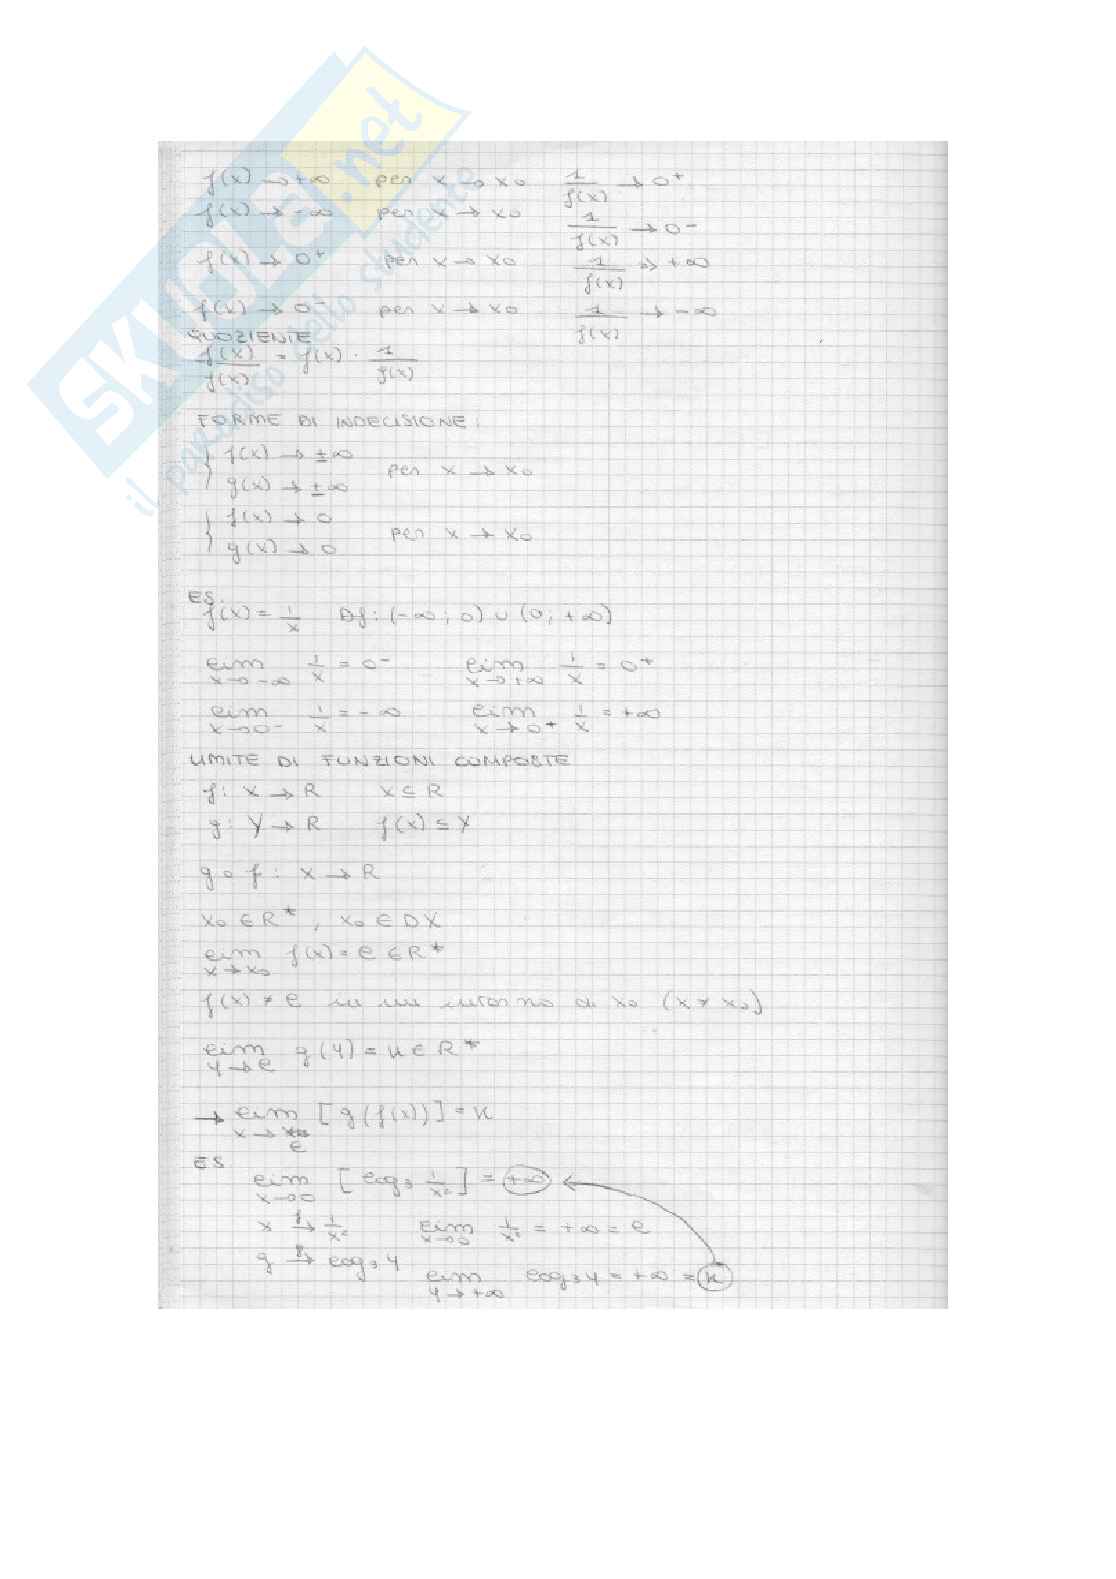 SKUOLA.net
il paradiso dello studente
f(x) → +∞ per x → x₀ 1/f(x) → 0⁺
f(x) → -∞ per x → x₀ 1/f(x) → 0⁻
f(x) → 0⁺ per x → x₀ 1/f(x) → +∞
f(x) → 0⁻ per x → x₀ 1/f(x) → -∞
QUOZIENTE
f(x)/f(x) = f(x) · 1/f(x)
FORME DI INDECISIONE:
f(x) → ±∞
per x → x₀
g(x) → ±∞
f(x) → 0
per x → x₀
g(x) → 0
ES.
f(x) = 1/x Df: (-∞; 0) ∪ (0; +∞)
lim x→-∞ 1/x = 0⁻ lim x→+∞ 1/x = 0⁺
lim x→0⁻ 1/x = -∞ lim x→0⁺ 1/x = +∞
LIMITE DI FUNZIONI COMPOSTE
f: X → R X ⊆ R
g: Y → R f(x) ⊆ Y
g∘f: X → R
x₀ ∈ R*, x₀ ∈ DX
lim x→x₀ f(x) = l ∈ R*
f(x) ≠ l in un intorno di x₀ (x ≠ x₀)
lim y→l g(y) = k ∈ R*
→ lim x→ l [g(f(x))] = k
ES
lim x→0 [log₃ 1/x²] = +∞
x →f 1/x² lim x→0 1/x² = +∞ = l
g → log₃ y
lim y→+∞ log₃ y = +∞ = k